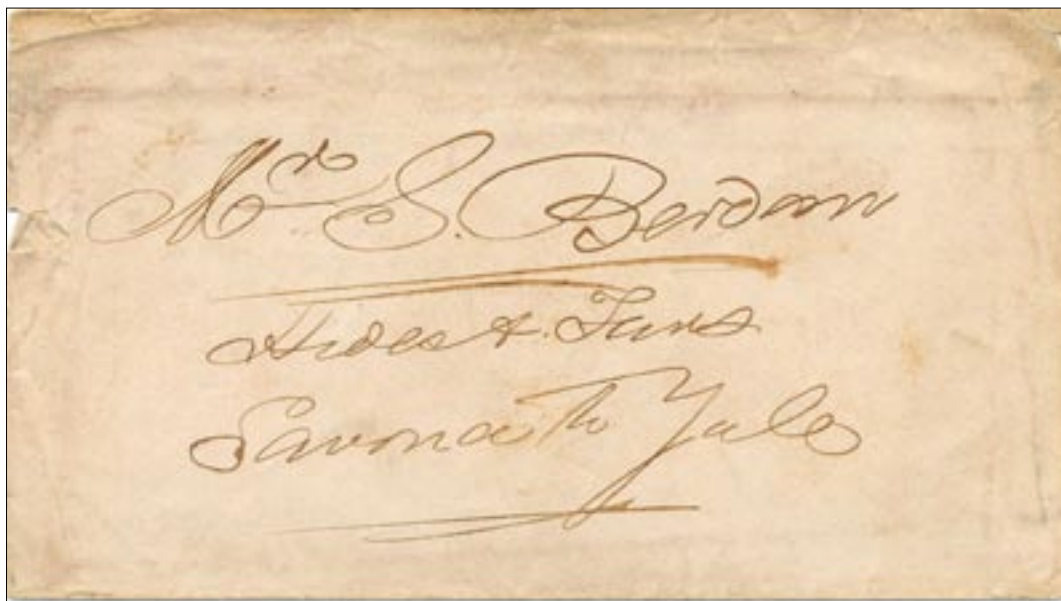 Mr. S. Berdan
Hides & Furs
Savona to Yale